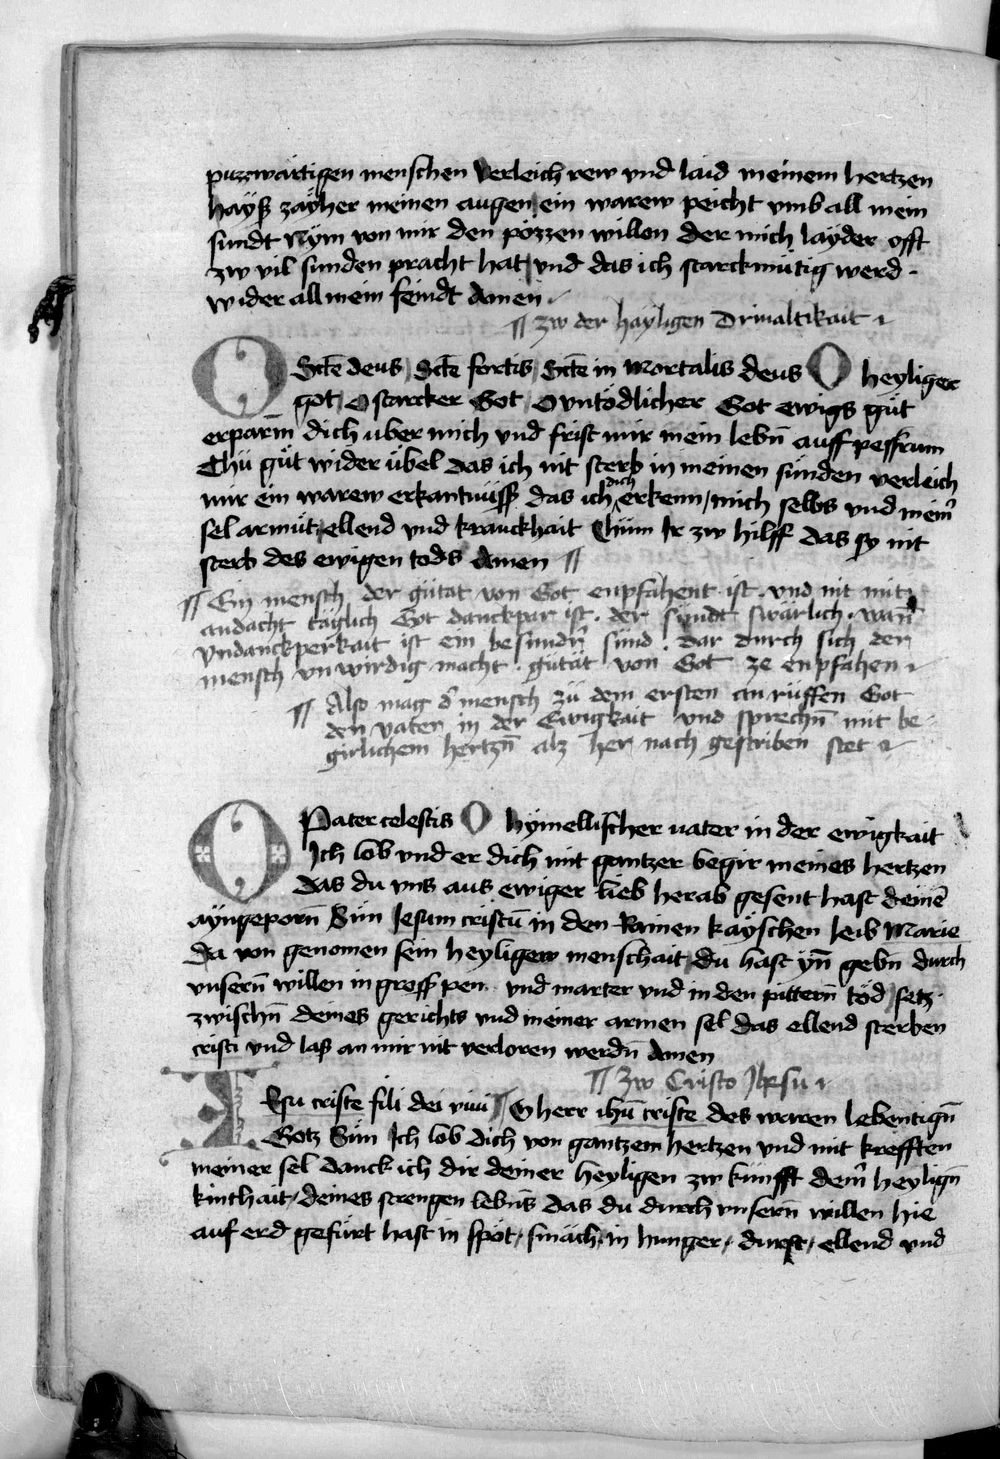 puzzwartigen menschen verleich rew vnd laid meinem hertzen
hayß zäyher meinen augen ein warew peicht vmb all mein
sundt Nym von mir den pözzen willen der mich layder offt
zw vil sunden pracht hat vnd das ich starckmütig werd
wider all mein feindt Amen
zw der hayligen Driualtikait
O Scte deus Scte fortis Scte in Mortalis deus O heyliger
got O starcker Got O vntödlicher Got ewigs güt
erparm̄ dich uber mich vnd frist mir mein lebn̄ auff pessrum
Thü güt wider übel das ich nit sterb in meinen sünden verleich
mir ein warew erkantnüss das ich dich erkenn mich selbs vnd mein̄
sel armüt ellend vnd kranckhait Chüm Ir zw hilff das sy nit
sterb des ewigen tods Amen
Ein mensch der gütat von Got enpfahent ist vnd nit mit
andacht täglich Got danckpar ist der sündt swärlich wan̄
vndanckperkait ist ein besundr̄ sünd dar durch sich der
mensch vnwirdig macht gütät von Got ze enpfahen
Also mag d̄ mensch zü dem ersten an rüffen Got
den vater in der Ewigkait vnd sprechn̄ mit be
girlichem hertzn̄ alz her nach gescriben stet
O Pater celestis O hymellischer uater in der ewigkait
Ich lob vnd er dich mit gantzer begir meines hertzen
Das du vns aus ewiger lieb herab gesent hast deinē
ayngeporn̄ Sün Jesum cristū in den Rainen kayschen leib Marie
Da von genomen sein heyligew menschait du hast yn̄ gebn̄ durch
vnsern̄ willen in gross pen vnd marter vnd in den pittern̄ töd setz
zwischn̄ deines gerichts vnd meiner armen sel das ellend sterben
cristi vnd laß an mir nit verloren werdn̄ Amen
Zw Cristo Jhesu
IEsu criste fili dei viui O herr ihū criste des waren lebentign̄
Gotz Sün Ich lob dich von gantzem hertzen vnd mit krefften
meiner sel danck ich dir deiner heyligen zw künfft dein̄ heylign̄
kinthait deines strengen lebn̄s das du durch vnsern̄ willen hie
auf erd gefürt hast in spöt smäch in hunger durst ellend vnd